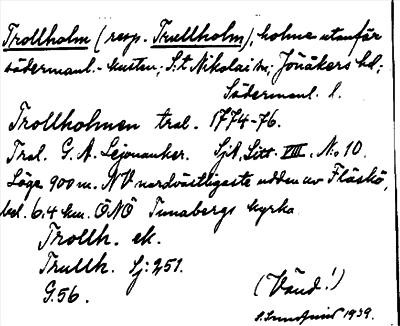 Trollholm (resp. Trullholm); holme utanför
södermanl. kusten; S:t Nikolai sn; Jönåkers hd;
Södermanl. l.
Trollholmen tral. 1774-76.
Tral. G. A. Lejonanker. SjA, Litt. VIII. No 10.
Läge 900 m. NV nordvästligaste udden av Fläskö,
bel. 6,4 km. ÖNÖ Tunabergs kyrka
Trollh. ek.
Trullh. Sj: 251.
G.56.
(Vänd!)
1939.